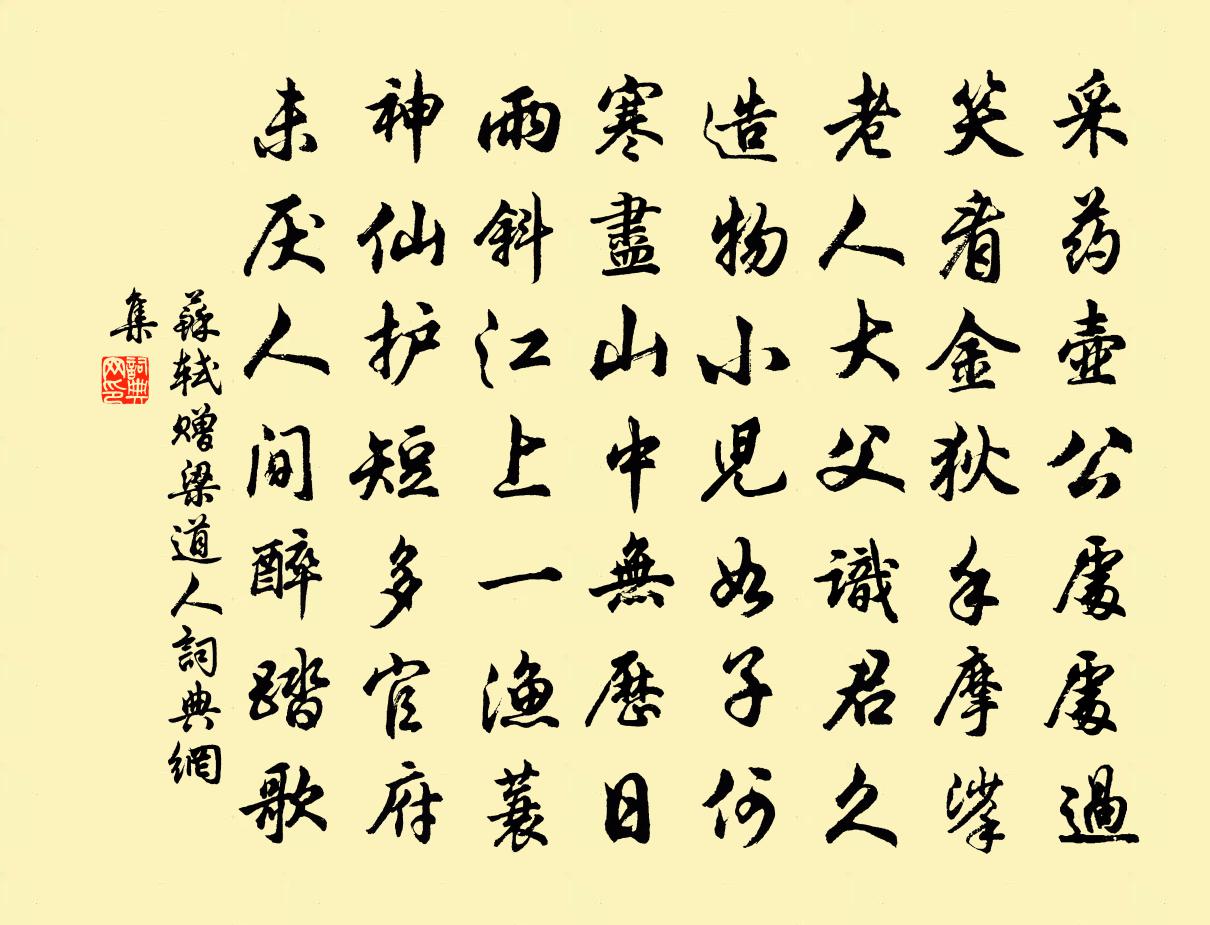 采药壶公處處過
笑看金狄手摩挲
老人大父識君久
造物小兒如子何
寒盡山中無歷日
雨斜江上一漁蓑
神仙护短多官府
未厌人间醉踏歌
蘇軾赠梁道人詞典網
集
詞典
网印